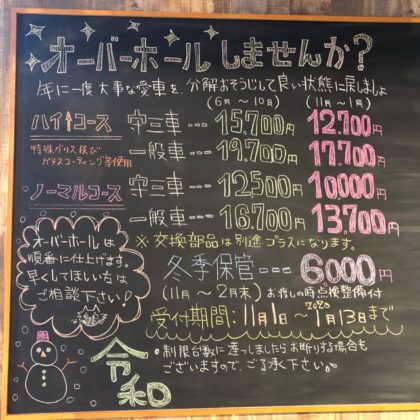 オーバーホールしませんか?
年に一度大事な愛車を、分解おそうじして良い状態に戻しましょ
(6月〜10月) (11月〜1月)
ハイ↑コース 守三車--- 15,700円 12,700円
特殊グリス及び
ガラスコーティング等使用
一般車--- 19,700円 17,700円
ノーマルコース 守三車--- 12,500円 10,000円
一般車--- 16,700円 13,700円
※交換部品は別途プラスになります。
オーバーホールは
順番に仕上げます。
早くしてほしい方は
ご相談下さい!
冬季保管--- 6000円
(11月〜2月末) お渡しの時点検整備付
受付期間:11月1日〜2020 1月13日まで
。制限台数に達っしましたらお断りする場合も
ございますので、ご了承下さい。
令和